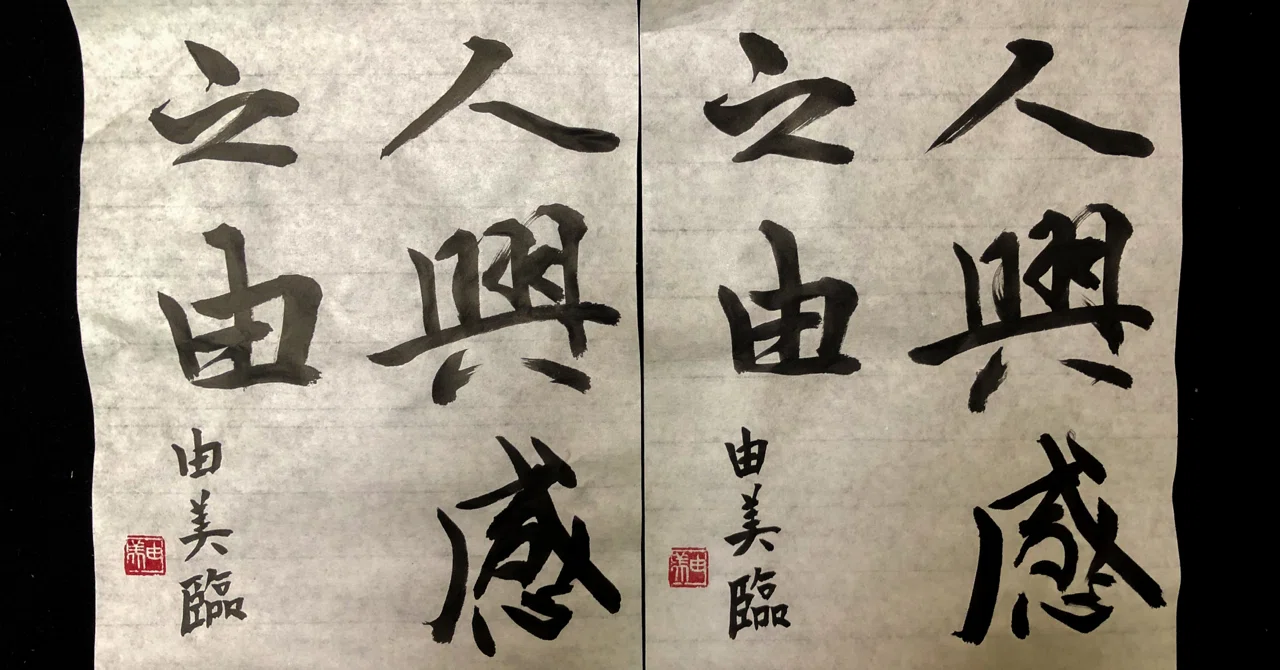 人興感
之由
由美臨
由美
人興感
之由
由美臨
由美